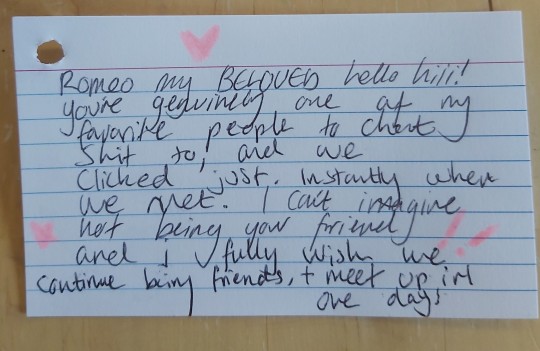 Romeo my BELOVED hello hiii!
you're genuinely one of my
favorite people to chat
shit to, and we
clicked just. Instantly when
we met. I can't imagine
not being your friend
and i fully wish we!!
continue being friends, + meet up irl
one day!